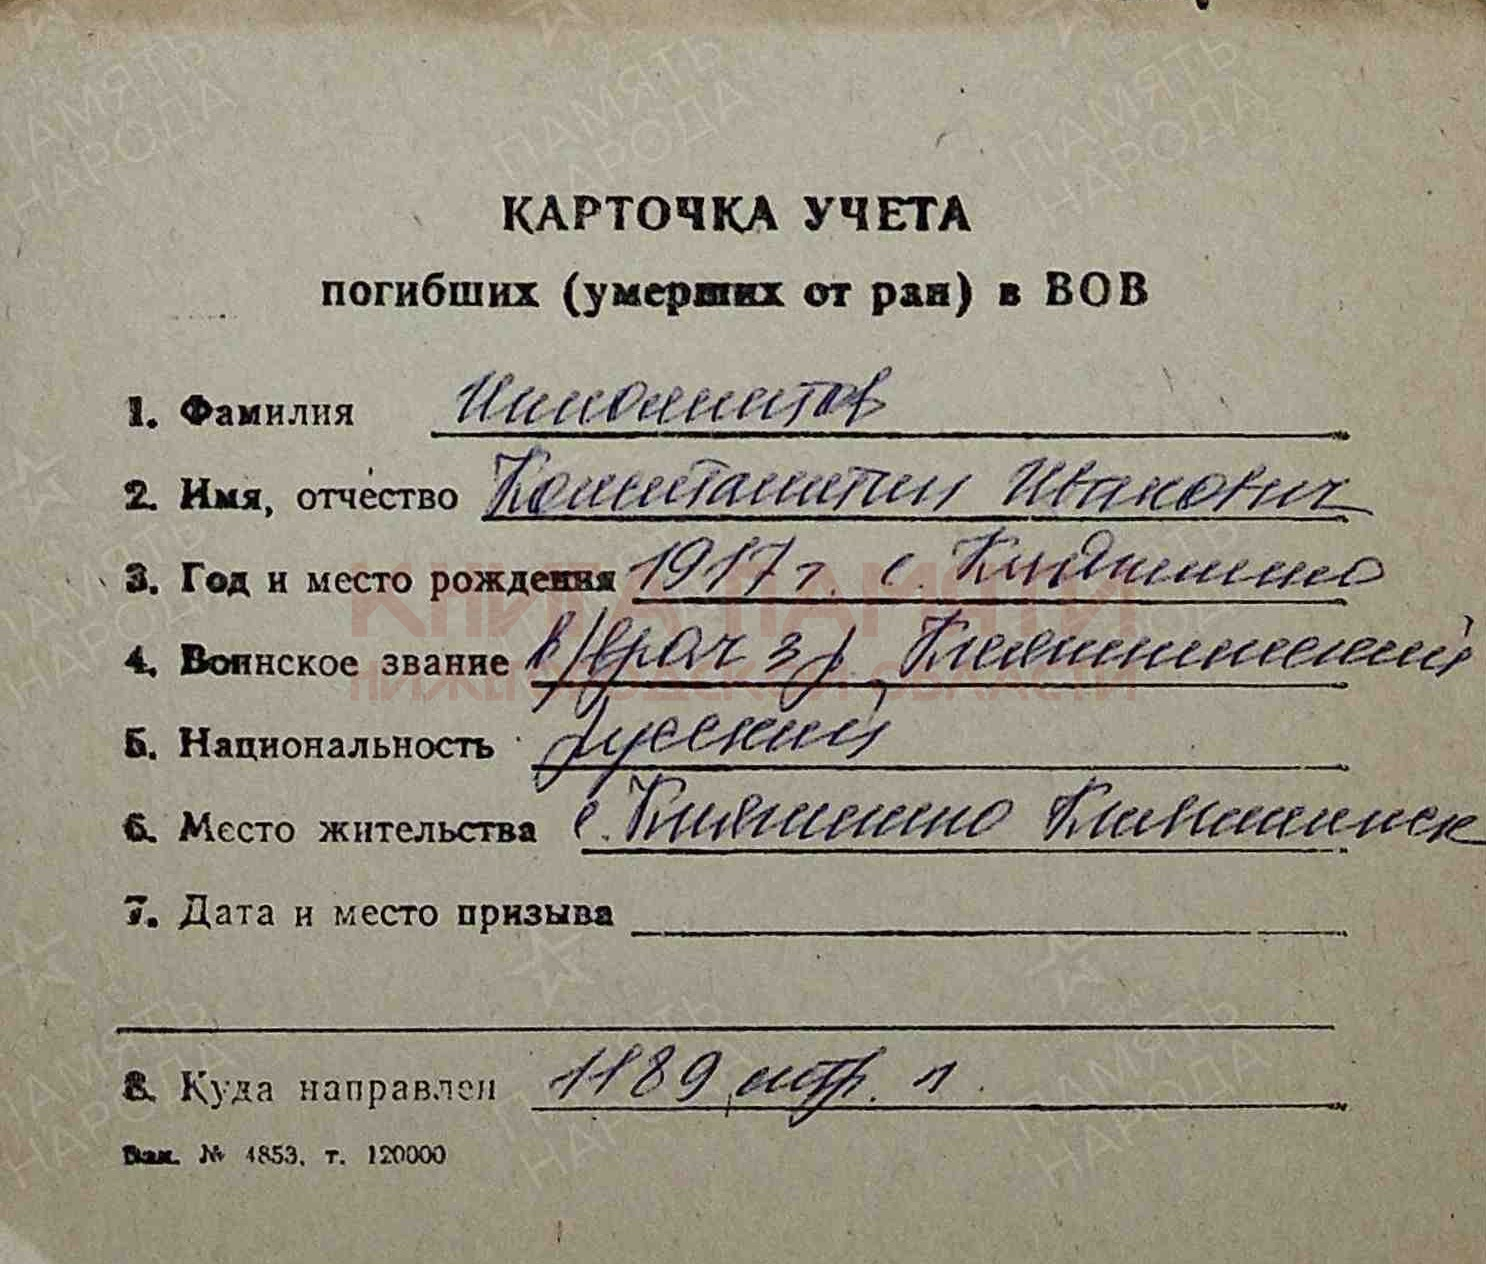 КАРТОЧКА УЧЕТА
погибших (умерших от ран) в ВОВ
1. Фамилия Ипполитов
2. Имя, отчество Константин Иванович
3. Год и место рождения 1917 г. с. Княгинино
4. Воинское звание в/врач 3 р. Княгининский
5. Национальность русский
6. Место жительства с. Княгинино Княгининск
7. Дата и место призыва
8. Куда направлен 1189 стр. п.
Зак. № 4853. т. 120000
КНИГА ПАМЯТИ
НИЖЕГОРОДСКОЙ ОБЛАСТИ
ПАМЯТЬ
НАРОДА